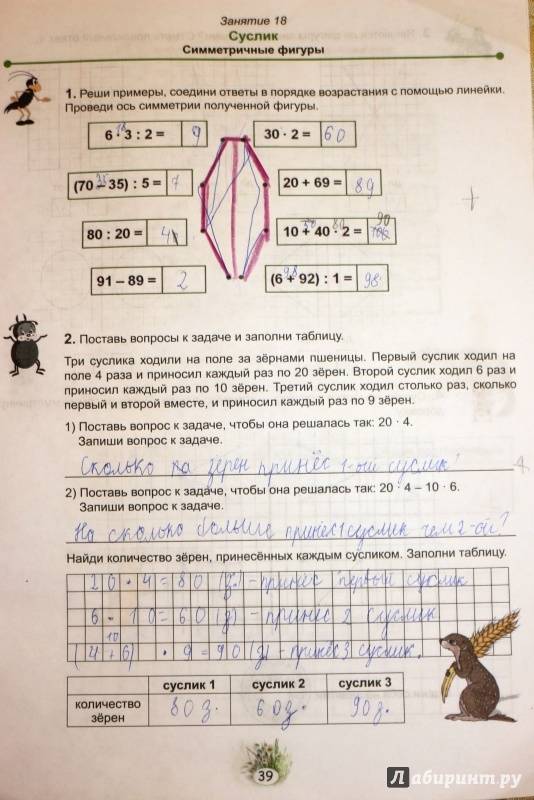 Занятие 18
Суслик
Симметричные фигуры
1. Реши примеры, соедини ответы в порядке возрастания с помощью линейки.
Проведи ось симметрии полученной фигуры.
18
6 · 3 : 2 = 9
30 · 2 = 60
35
(70 – 35) : 5 = 7
20 + 69 = 89
80 : 20 = 4
50 80 90
10 + 40 · 2 =
91 – 89 = 2
98
(6 + 92) : 1 = 98
2. Поставь вопросы к задаче и заполни таблицу.
Три суслика ходили на поле за зёрнами пшеницы. Первый суслик ходил на
поле 4 раза и приносил каждый раз по 20 зёрен. Второй суслик ходил 6 раз и
приносил каждый раз по 10 зёрен. Третий суслик ходил столько раз, сколько
первый и второй вместе, и приносил каждый раз по 9 зёрен.
1) Поставь вопрос к задаче, чтобы она решалась так: 20 · 4.
Запиши вопрос к задаче.
Сколько зерен принёс 1-ый суслик?
2) Поставь вопрос к задаче, чтобы она решалась так: 20 · 4 – 10 · 6.
Запиши вопрос к задаче.
На сколько больше принёс 1 суслик чем 2-ой?
Найди количество зёрен, принесённых каждым сусликом. Заполни таблицу.
20 · 4 = 80 (з.) – принёс первый суслик
6 · 10 = 60 (з) – принёс 2 суслик
10
(4 + 6) · 9 = 90 (з) – принёс 3 суслик.
суслик 1 суслик 2 суслик 3
количество зёрен 80 з. 60 з. 90 з.
39
Лабиринт.ру